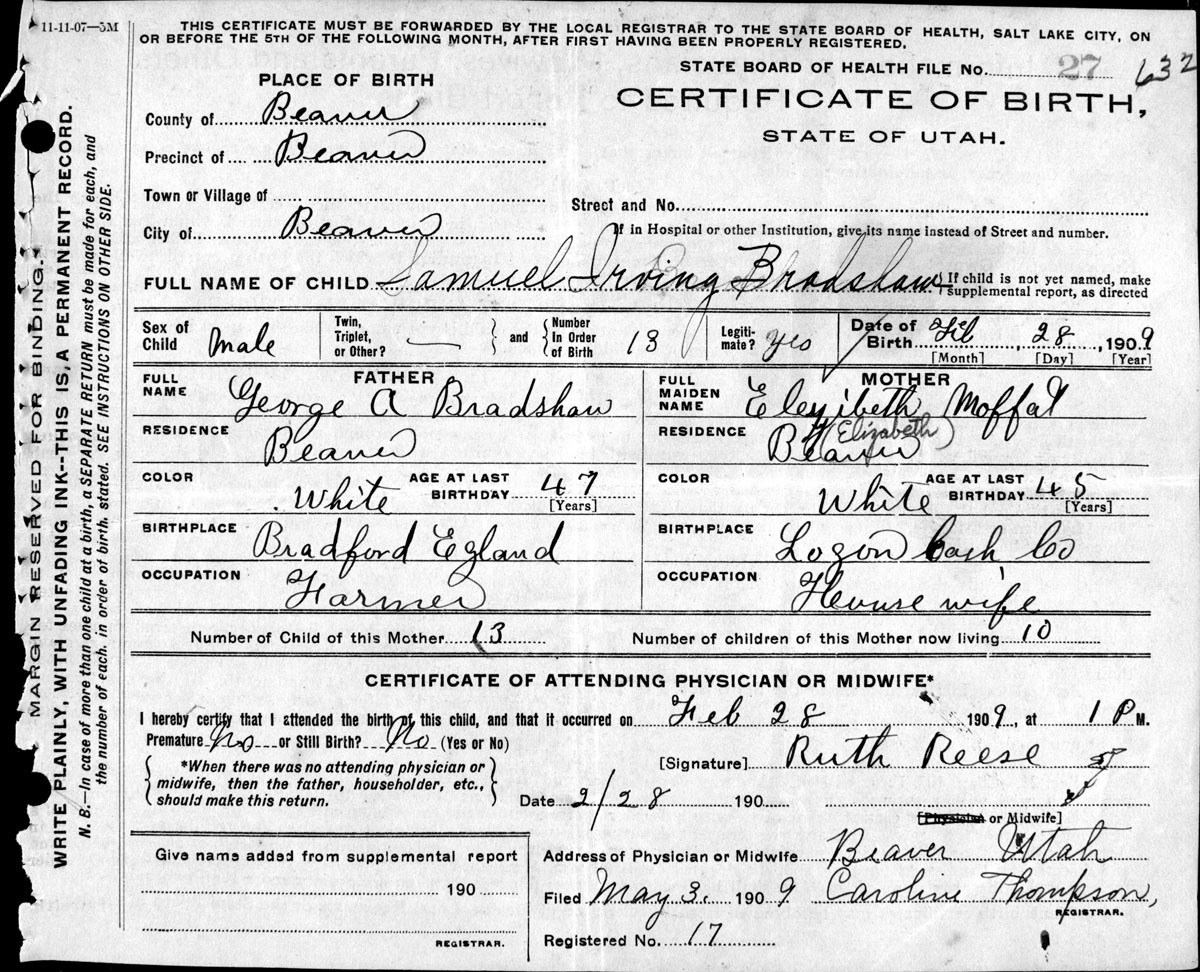 11-11-07—5M
THIS CERTIFICATE MUST BE FORWARDED BY THE LOCAL REGISTRAR TO THE STATE BOARD OF HEALTH, SALT LAKE CITY, ON
OR BEFORE THE 5TH OF THE FOLLOWING MONTH, AFTER FIRST HAVING BEEN PROPERLY REGISTERED.
MARGIN RESERVED FOR BINDING.
WRITE PLAINLY, WITH UNFADING INK--THIS IS A PERMANENT RECORD.
N. B.—In case of more than one child at a birth, a SEPARATE RETURN must be made for each, and
the number of each, in order of birth stated. SEE INSTRUCTIONS ON OTHER SIDE.
PLACE OF BIRTH
County of Beaver
Precinct of Beaver
Town or Village of
City of Beaver
STATE BOARD OF HEALTH FILE No. 27 632
CERTIFICATE OF BIRTH,
STATE OF UTAH.
Street and No.
If in Hospital or other Institution, give its name instead of Street and number.
FULL NAME OF CHILD Samuel Irving Bradshaw { If child is not yet named, make
supplemental report, as directed
Sex of Child Male
Twin, Triplet, or Other? — } and { Number In Order of Birth 13
Legiti- mate? Yes
Date of Birth Feb, 28, 1909
[Month] [Day] [Year]
FATHER
FULL NAME George A Bradshaw
RESIDENCE Beaver
COLOR White AGE AT LAST BIRTHDAY 47 [Years]
BIRTHPLACE Bradford Egland
OCCUPATION Farmer
MOTHER
FULL MAIDEN NAME Elezibeth Moffat
(Elizabeth)
RESIDENCE Beaver
COLOR White AGE AT LAST BIRTHDAY 45 [Years]
BIRTHPLACE Logon Cash Co
OCCUPATION House wife
Number of Child of this Mother 13 Number of children of this Mother now living 10
CERTIFICATE OF ATTENDING PHYSICIAN OR MIDWIFE*
I hereby certify that I attended the birth of this child, and that it occurred on Feb 28 1909, at 1 P M.
Premature No or Still Birth? No (Yes or No)
{ *When there was no attending physician or
midwife, then the father, householder, etc.,
should make this return. }
[Signature] Ruth Reese
Date 2/28 190
[Physician or Midwife]
Give name added from supplemental report
190
REGISTRAR.
Address of Physician or Midwife Beaver Utah
Filed May 3. 1909 Caroline Thompson,
REGISTRAR.
Registered No. 17